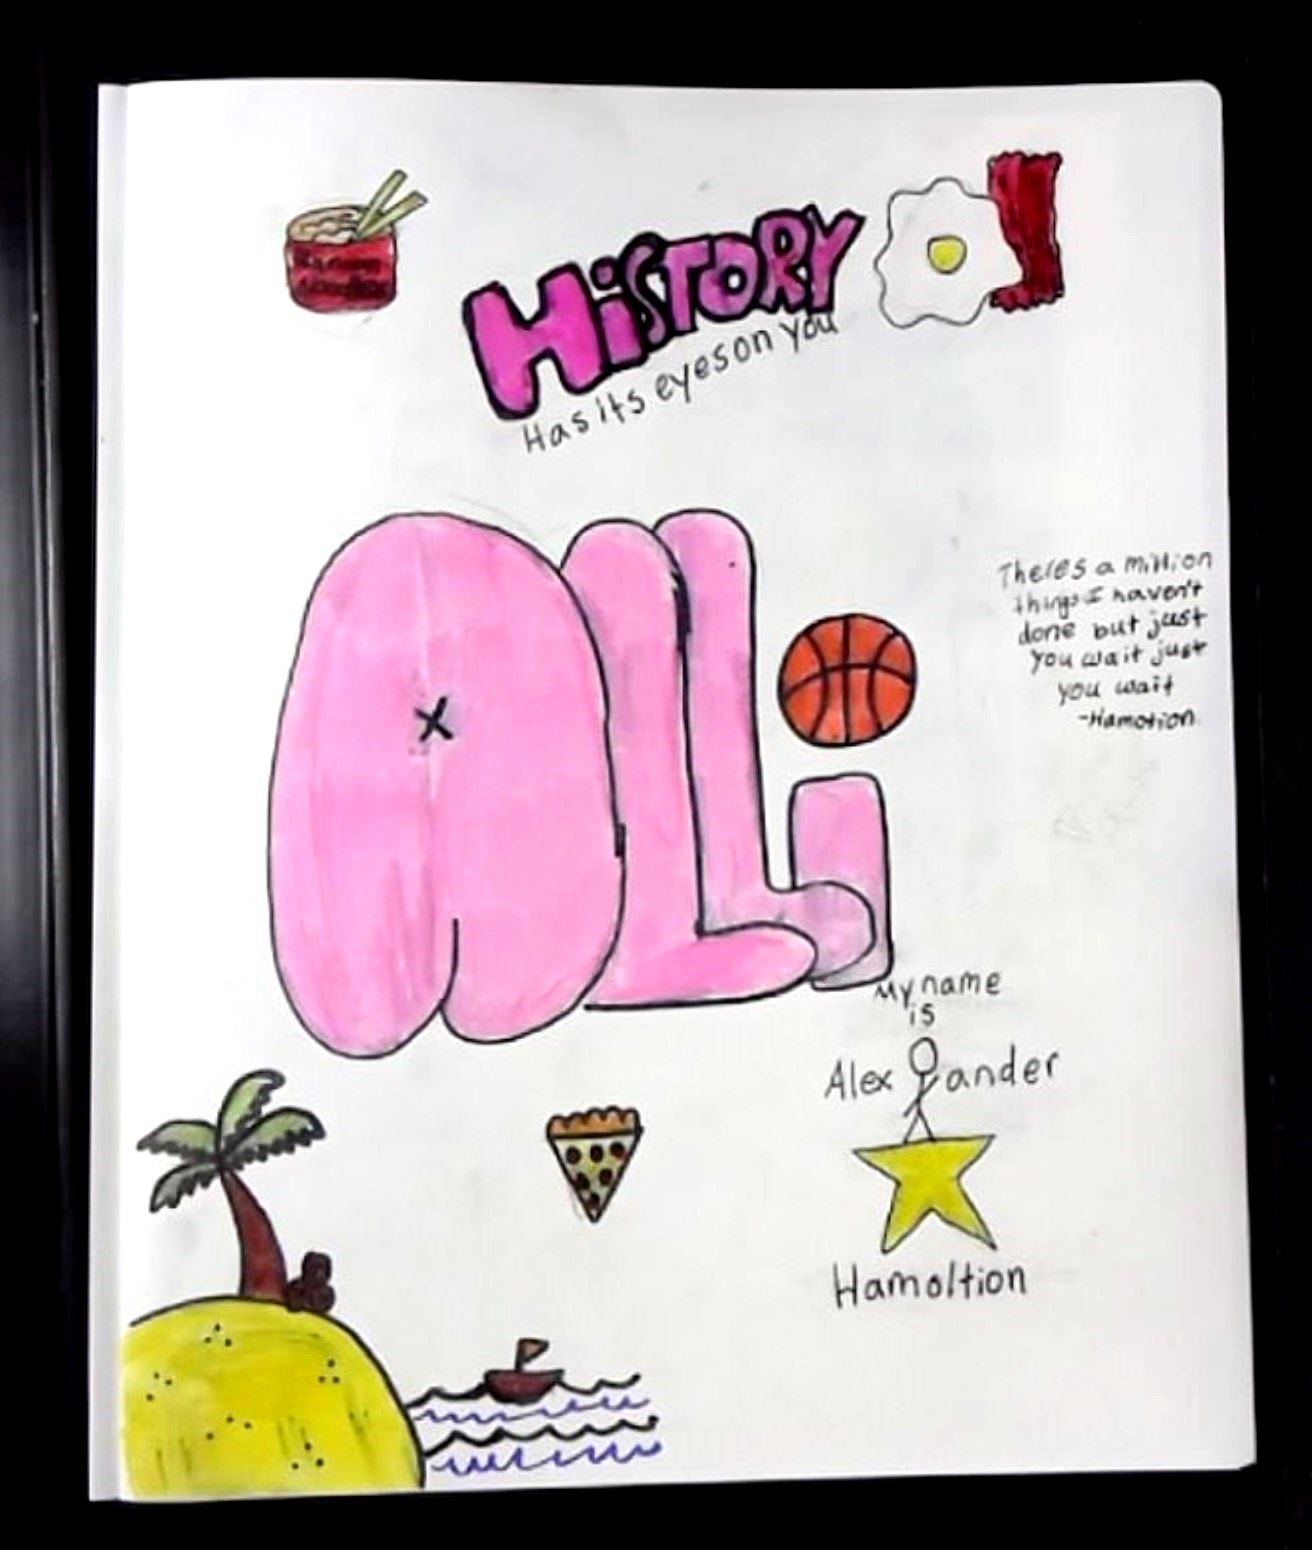 Ramen
Noodles
HiSTORY
Has its eyes on you
ALi
Theres a million
things I haven't
done but just
you wait just
you wait
-Hamotion
My name
is
Alexander
Hamoltion